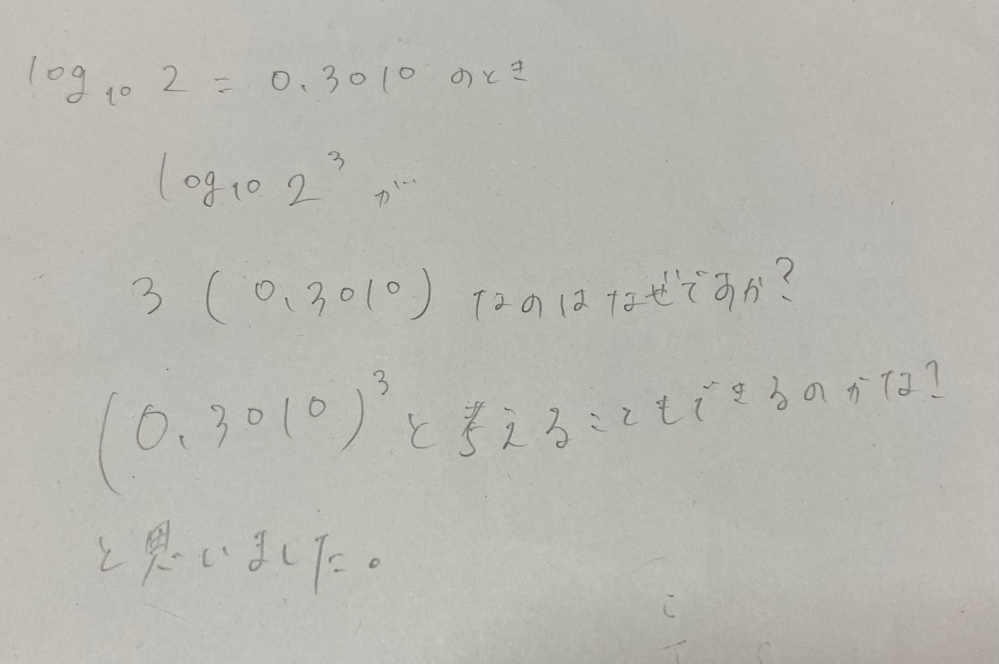 log₁₀ 2 = 0.3010 のとき
log₁₀ 2³ が…
3 (0.3010) なのはなぜですか?
(0.3010)³ と考えることもできるのかな?
と思いました。